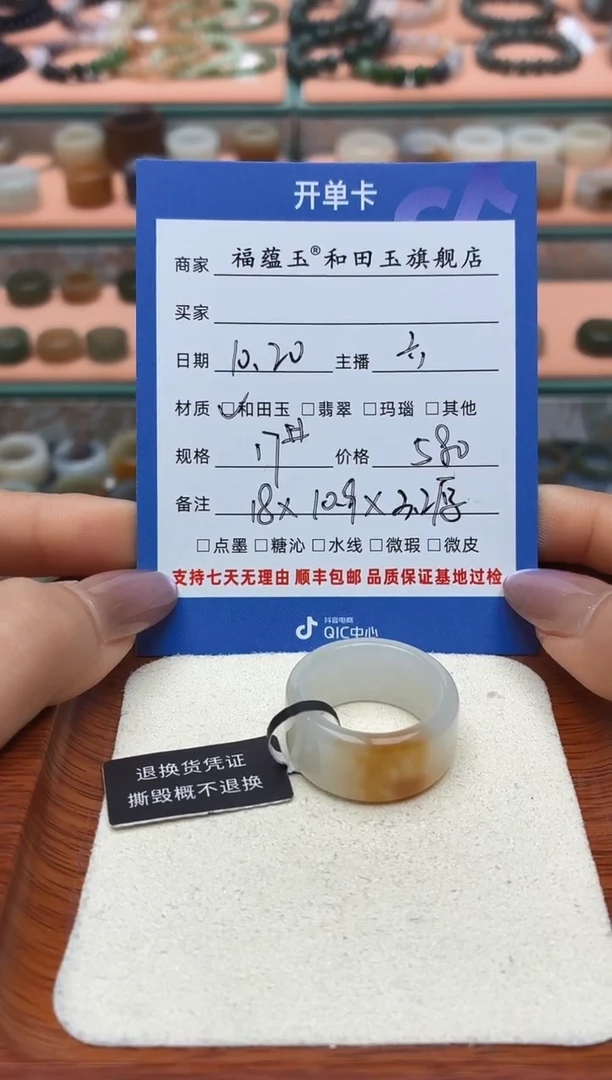 开单卡
商家 福蕴玉®和田玉旗舰店
买家
日期 10.20 主播 六
材质 ☑和田玉 □翡翠 □玛瑙 □其他
规格 17# 价格 580
备注 18×10.9×3.2厚
□点墨 □糖沁 □水线 □微瑕 □微皮
支持七天无理由 顺丰包邮 品质保证基地过检
抖音电商
QIC中心
退换货凭证
撕毁概不退换